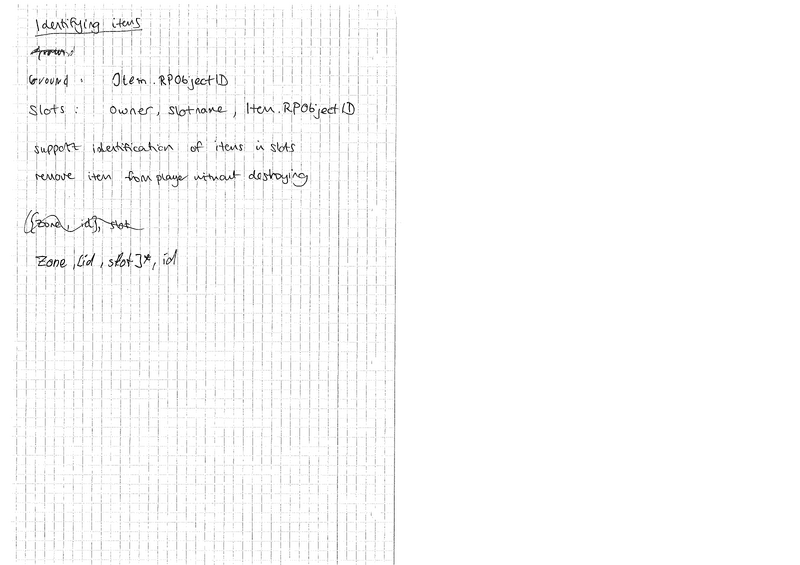 Identifying items
Ground : Item.RPObjectID
Slots : Owner, slotname, Item.RPObjectID
support identification of items in slots
remove item from player without destroying
([zone, id], slot
Zone, [id, slot]*, id